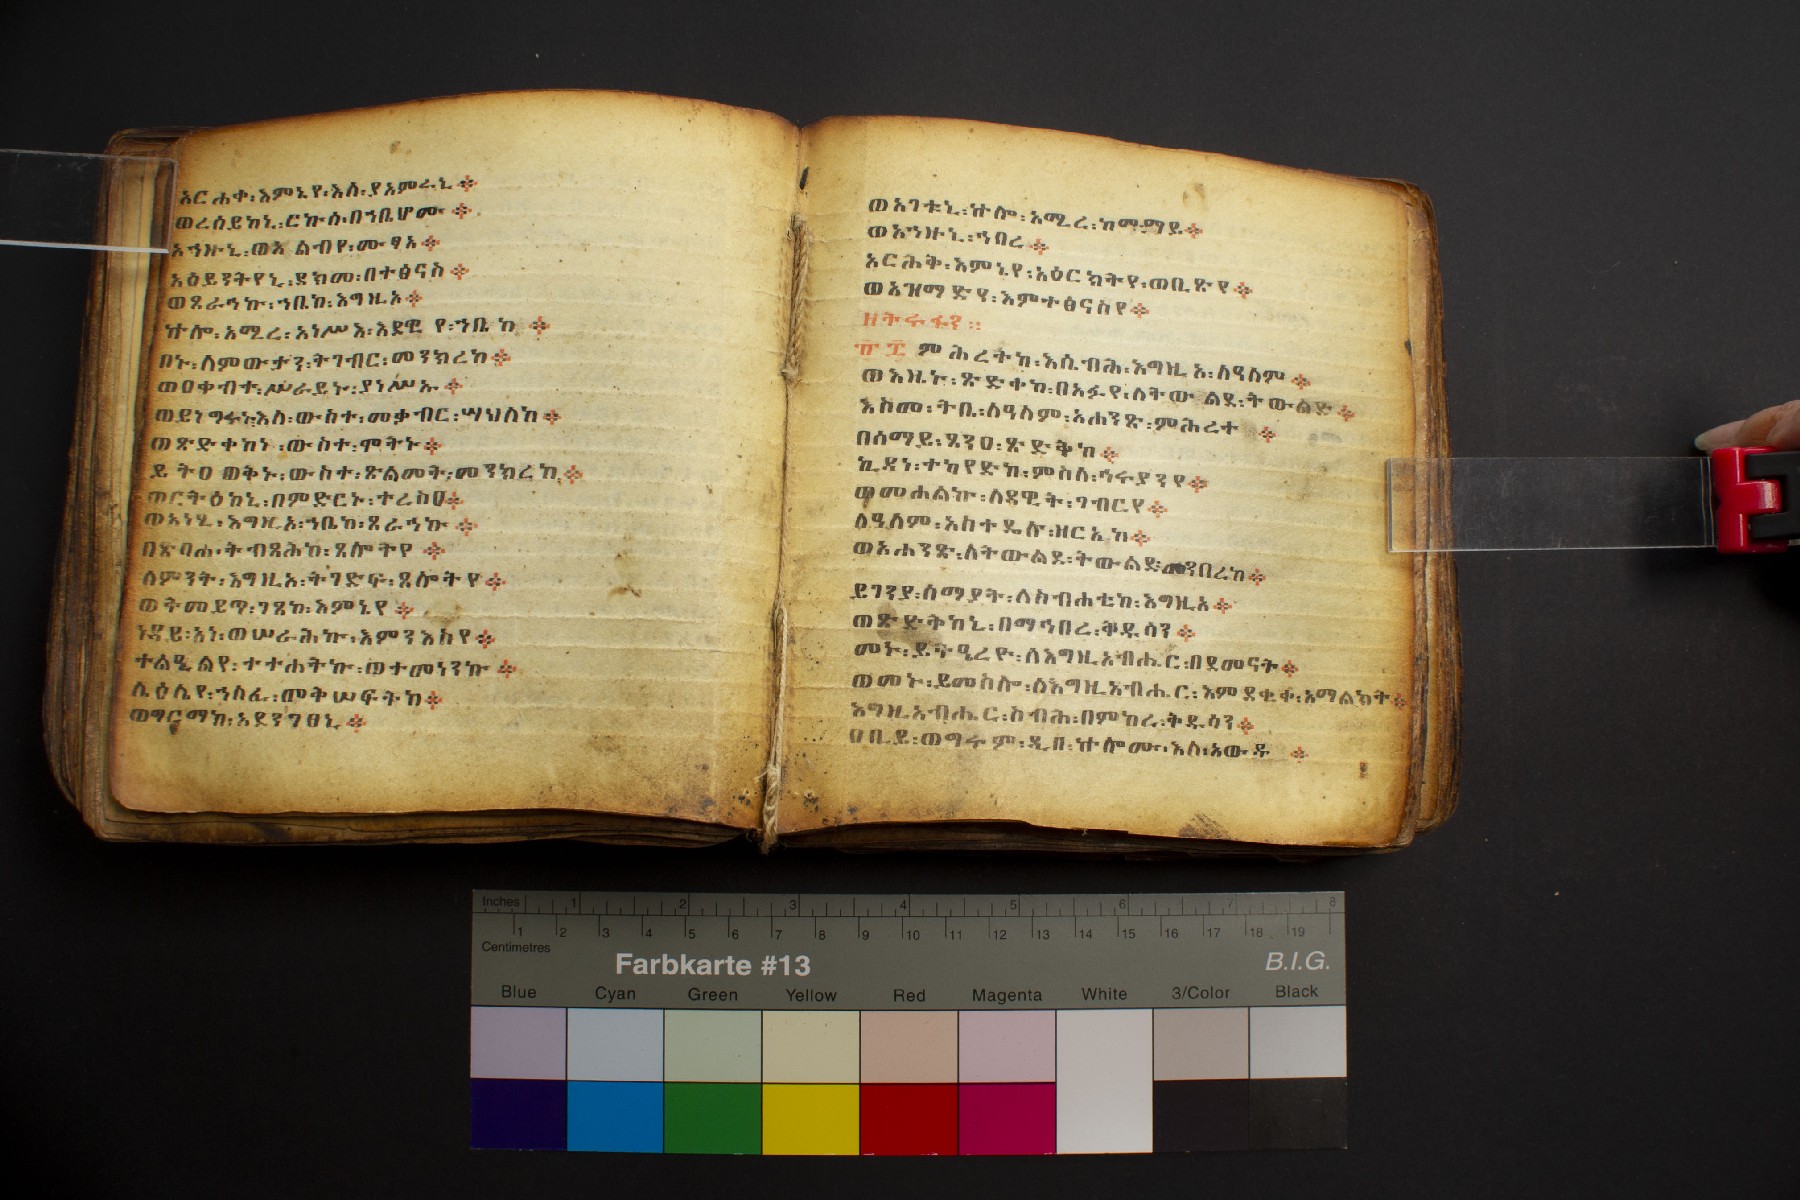 አርሐቀ፡እምኔየ፡እለ፡ያአምሩኒ፨
ወረሰይከኒ፡ርኩሰ፡በኀቤሆሙ፨
አኀዙኒ፡ወአልብየ፡ሙፃአ፨
አዕይንትየኒ፡ደክመ፡በተፅናስ፨
ወጸራኅኩ፡ኀቤከ፡እግዚአ፨
ኵሎ፡አሚረ፡አነሥእ፡እደዊየ፡ኀቤከ፨
በኑ፡ለምውታን፡ትገብር፡መንክረከ፨
ወዐቀብተ፡ሥራይኑ፡ያነሥኡ፨
ወይነግሩኑ፡እለ፡ውስተ፡መቃብር፡ሣህለከ፨
ወጽድቀከኑ፡ውስተ፡ሞትኑ፨
ይትዐወቅኑ፡ውስተ፡ጽልመት፡መንክረከ፨
ወርትዕከኒ፡በምድርኑ፡ተረስዐ፨
ወአነሂ፡እግዚአ፡ኀቤከ፡ጸራኅኩ፨
በጽባሐ፡ትብጸሕከ፡ጸሎትየ፨
ለምንት፡እግዚአ፡ትገድፍ፡ጸሎትየ፨
ወትመይጥ፡ገጸከ፡እምኔየ፨
ነዳይ፡አነ፡ወሠራሕኩ፡እምንእስየ፨
ተልዒልየ፡ተተሐትኩ፡ወተመነንኩ፨
ላዕሌየ፡ኀለፈ፡መቅሠፍትከ፨
ወግርማከ፡አደንገፀኒ፨
ወአገቱኒ፡ኵሎ፡አሚረ፡ከመ፡ማይ፨
ወአኀዙኒ፡ኅቡረ፨
አርሐቅ፡እምኔየ፡አዕርክትየ፡ወቢጽየ፨
ወአዝማድየ፡እምተፅናስየ፨
ዘትሩፋን።
፹፰ ምሕረትከ፡እሴብሕ፡እግዚአ፡ለዓለም፨
ወእዜኑ፡ጽድቀከ፡በአፉየ፡ለትውልደ፡ትውልድ፨
እስመ፡ትቤ፡ለዓለም፡አሐንጽ፡ምሕረተ፨
በሰማይ፡ጸንዐ፡ጽድቅከ፨
ኪዳነ፡ተካየድኩ፡ምስለ፡ኅሩያንየ፨
ወመሐልኩ፡ለዳዊት፡ገብርየ፨
ለዓለም፡አስተዴሉ፡ዘርአከ፨
ወአሐንጽ፡ለትውልደ፡ትውልድ፡መንበረከ፨
ይገንያ፡ሰማያት፡ለስብሐቲከ፡እግዚአ፨
ወጽድቅከኒ፡በማኅበረ፡ቅዱሳን፨
መኑ፡ይትዔረዮ፡ለእግዚአብሔር፡በደመናት፨
ወመኑ፡ይመስሎ፡ለእግዚአብሔር፡እምደቂቀ፡አማልክት፨
እግዚአብሔር፡ስቡሕ፡በምክረ፡ቅዱሳን፨
ዐቢይ፡ወግሩም፡ዲበ፡ኵሎሙ፡እለ፡አውዱ፨
Inches 1 2 3 4 5 6 7 8
1 2 3 4 5 6 7 8 9 10 11 12 13 14 15 16 17 18 19
Centimetres
Farbkarte #13 B.I.G.
Blue Cyan Green Yellow Red Magenta White 3/Color Black